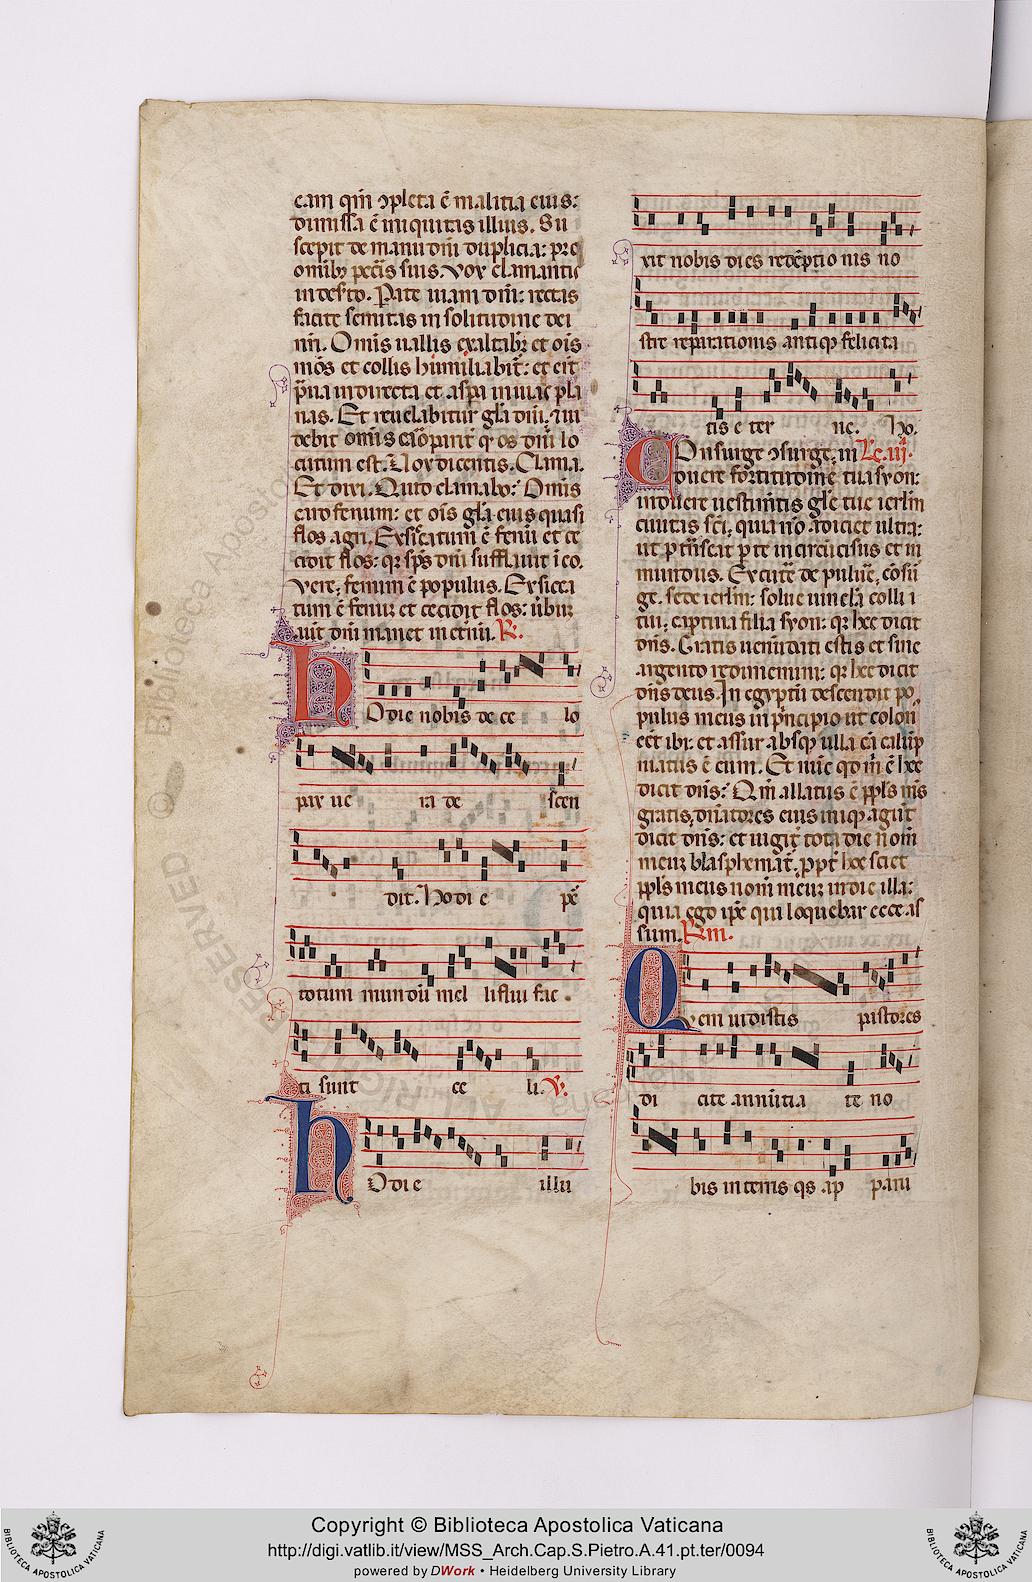 eam qm̄ ↄpleta ē malitia eius:
dimissa ē iniquitas illius. Su
scepit de manu dn̄i duplicia: pro
omib; pccīs suis. vox clamantis
in deserto. Parate uiam dn̄i: rectas
facite semitas in solitudine dei
nr̄i. Om̄is uallis exaltabit̄ et om̄is
mōs et collis humiliabit̄: et erūt
praua in directa et aspera in uias pla
nas. Et reuelabitur gl̄a dn̄i, ⁊ ui
debit omnis caro parit̄ qd̄ os dn̄i lo
cutum est. Uox dicentis. Clama.
Et dixi. Quid clamabo? Omnis
caro fenum: et om̄is gl̄a eius quasi
flos agri. Exsiccatum ē fenū et ce
cidit flos: qr sp̄s dn̄i sufflauit ī eo.
vere, fenum ē populus. Exsicca
tum ē fenum et cecidit flos: uerbum
aut dn̄i manet in etn̄um. R.
Hodie nobis de ce lo
pax ue ra de scen
dit. Hodi e pē
totum mundū mel liflui fac
ti sunt ce li. V.
Hodie illu
xit nobis dies redēptio nis no
stre reparationis antiq felicita
tis e ter ne. Ho.
Consurge ↄsurge, in Lc. iij.
duere fortitudine tua syon:
induere uestimtis gl̄e tue ierl̄m
ciuitas sc̄i, quia nō adiciet ultra:
ut p trāseat p te incircūcisus et in
mundus. Excutē de puluē, cōsur
ge. sede ierl̄m: solue uincl̄a colli t
tui, captiua filia syon: qr hec dicit
dn̄s. Gratis uenūdati estis et sine
argento redimemini: qr hec dicit
dn̄s deus. In egyptū descendit po
pulus meus in p̄ncipio ut colon
eēt ibi: et assur absq; ulla cā calūp
niatus ē eum. Et nūc qd m̄ ē hec
dicit dn̄s: Qm̄ ablatus ē ppl̄s m̄s
gratis, dn̄atores eius iniq; agūt
dicit dn̄s: et iugit̄ tota die nom̄
meum blasphemat̄. ppt̄ hoc sciet
ppl̄s meus nom̄ meum in die illa:
quia ego ip̄e qui loquebar ecce as
sum. Rm.
Quem uidistis pastores
di cite annūtia te no
bis in terris qs ap paru
Copyright © Biblioteca Apostolica Vaticana
http://digi.vatlib.it/view/MSS_Arch.Cap.S.Pietro.A.41.pt.ter/0094
powered by DWork • Heidelberg University Library